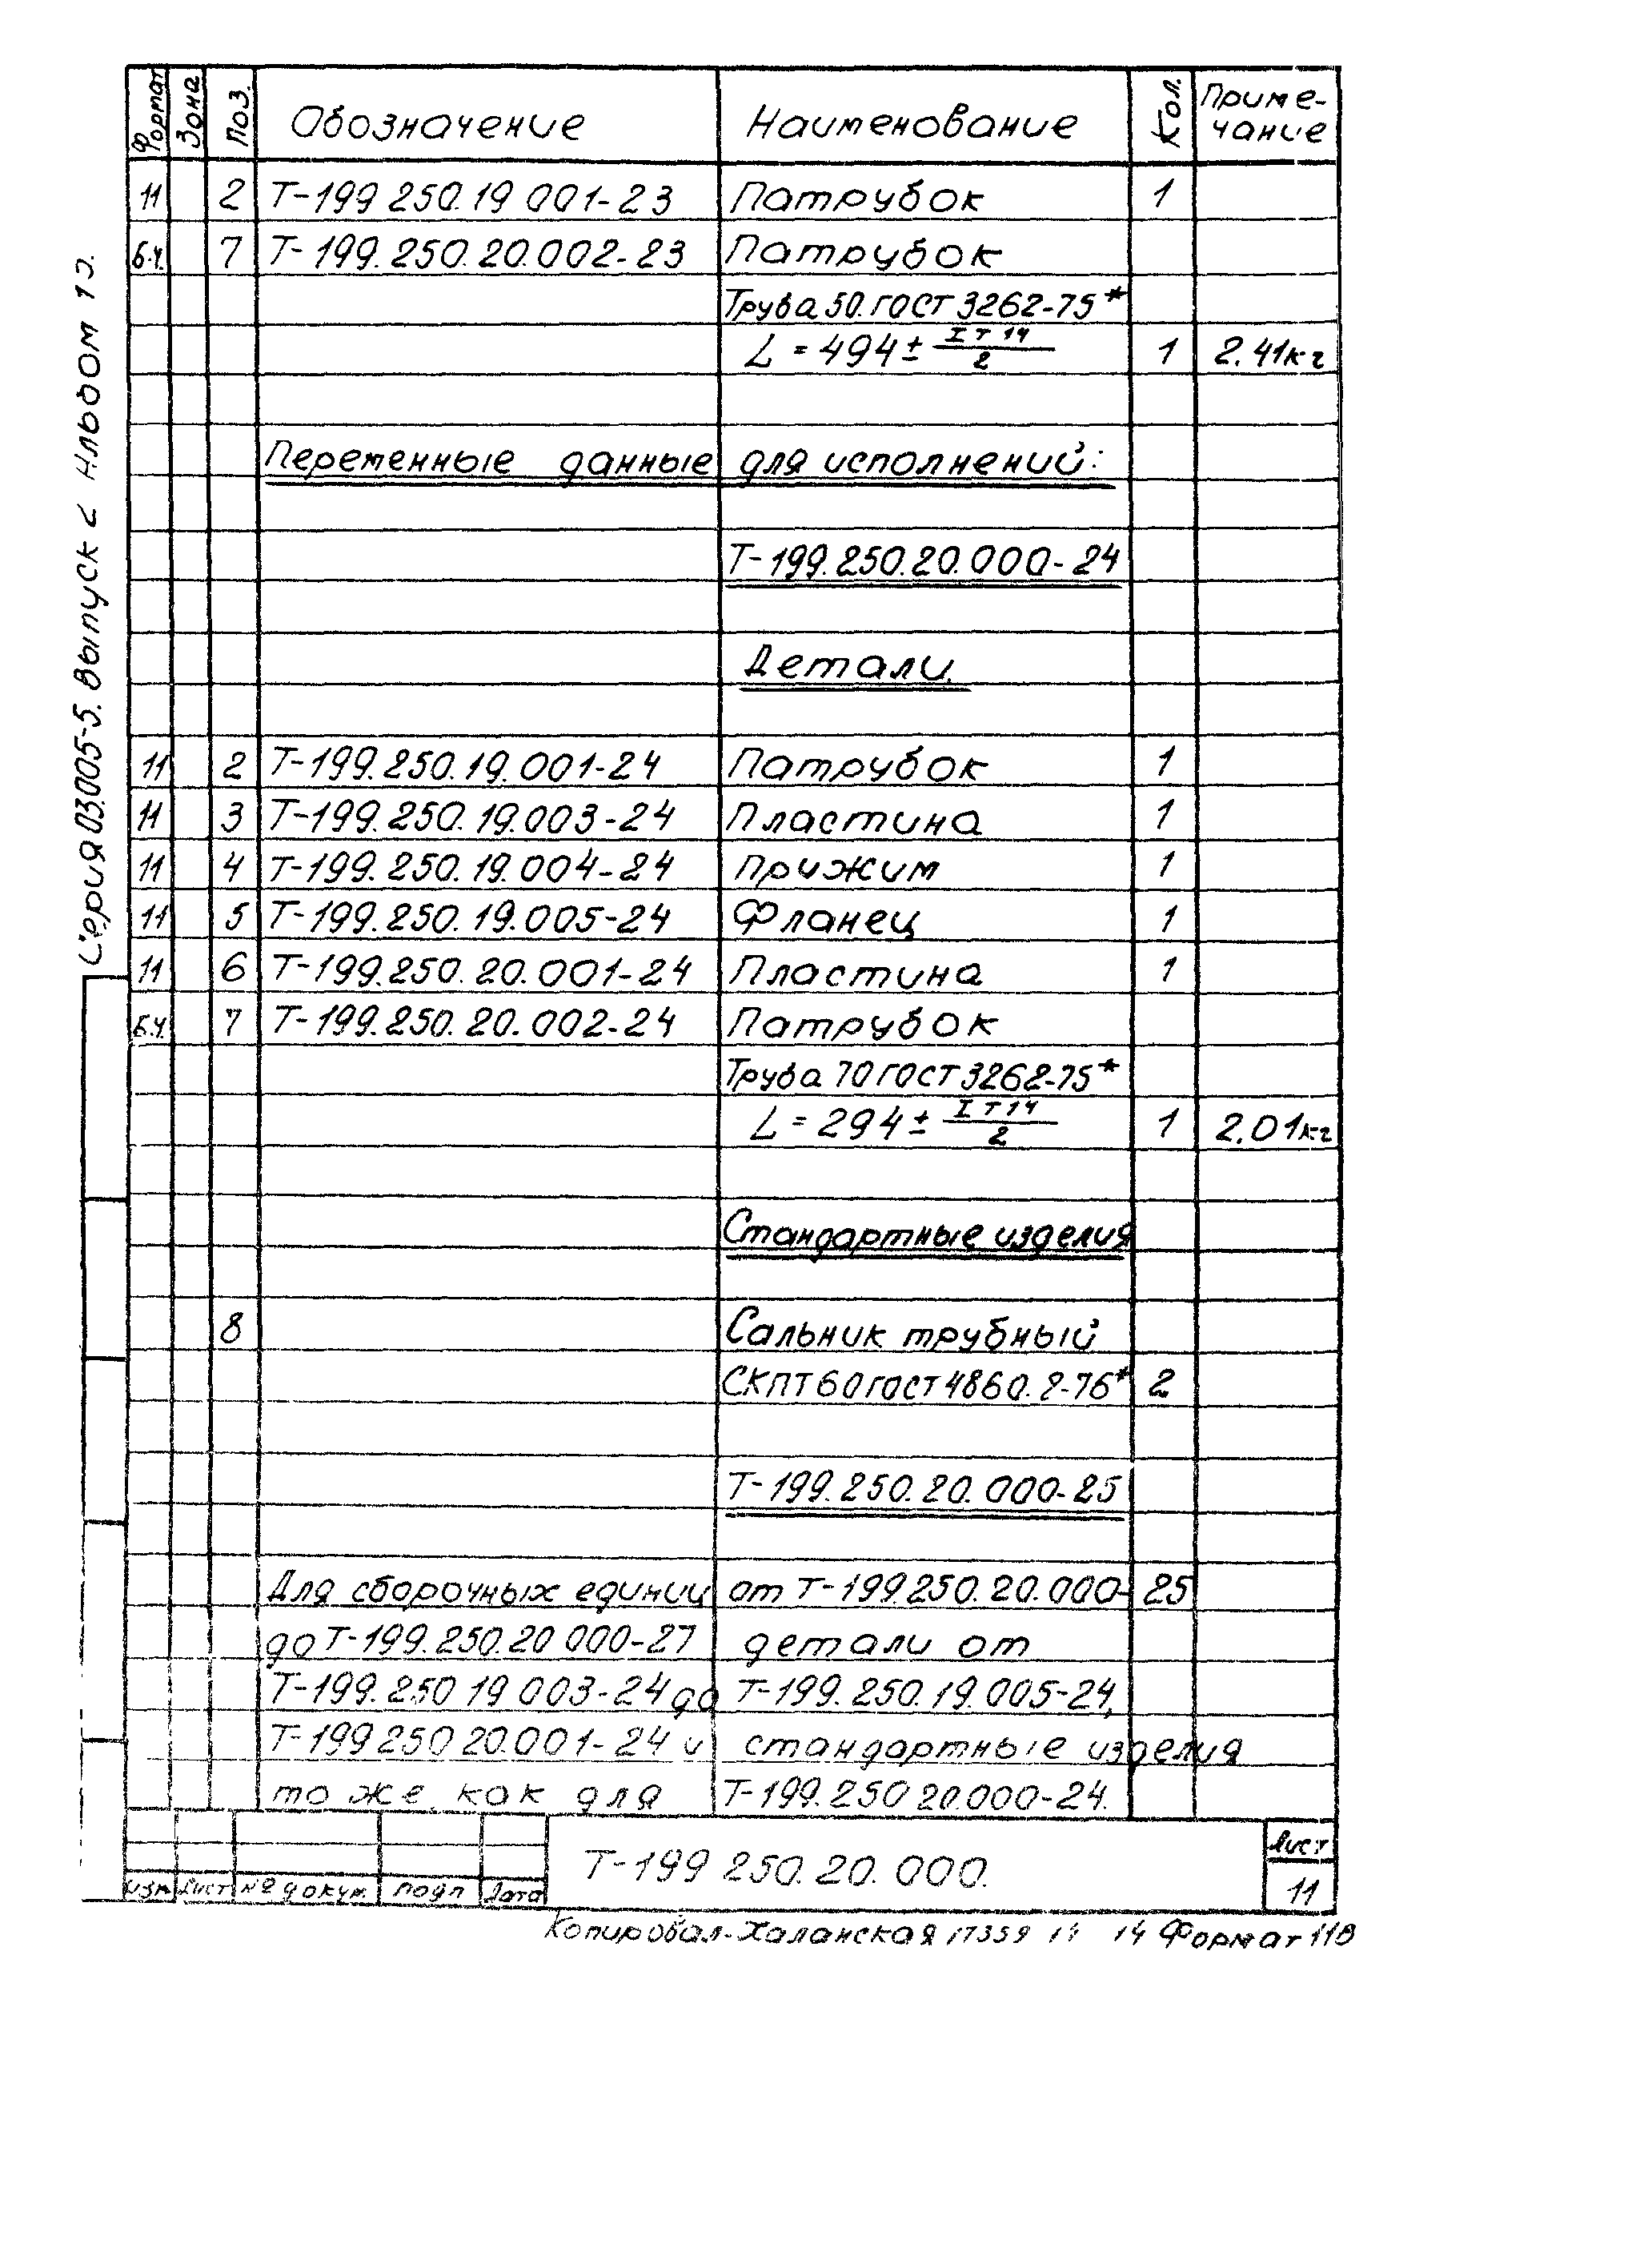 Формат Зона Поз. Обозначение Наименование Кол. Приме-
чание
11 2 Т-199 250.19 001-23 Патрубок 1
Б.Ч. 7 Т-199.250.20.002-23 Патрубок
Труба 50.ГОСТ 3262-75*
L = 494 ± IT14/2 1 2.41кг
Переменные данные для исполнений:
Т-199.250.20.000-24
Детали.
11 2 Т-199.250.19.001-24 Патрубок 1
11 3 Т-199.250.19.003-24 Пластина 1
11 4 Т-199.250.19.004-24 Прижим 1
11 5 Т-199.250.19.005-24 Фланец 1
11 6 Т-199.250.20.001-24 Пластина 1
Б.Ч. 7 Т-199.250.20.002-24 Патрубок
Труба 70 ГОСТ 3262-75*
L = 294 ± IT14/2 1 2.01кг
Стандартные изделия
8 Сальник трубный
СКПТ60 ГОСТ 4860.2-76* 2
Т-199.250.20.000-25
Для сборочных единиц от Т-199.250.20.000-25
до Т-199.250.20 000-27 детали от
Т-199.250 19 003-24 до Т-199.250.19.005-24,
Т-199 250 20.001-24 и стандартные изделия
то же, как для Т-199.250 20.000-24.
Изм Лист № докум. Подп Дата
Т-199 250.20.000.
Лист
11
Копировал-Халанская 17359 14 Формат 11В
Серия 03.005-5. Выпуск Альбом